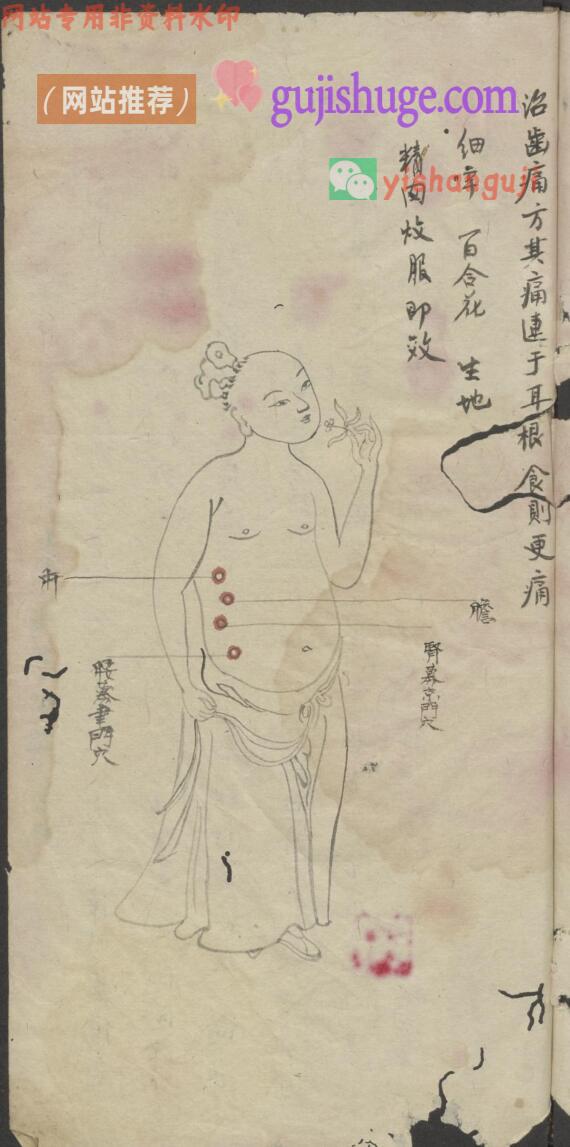 网站专用非资料水印
（网站推荐）
gujishuge.com
yishanguji
治齒痛方其痛連于耳根食則更痛
細辛 百合花 生地
精肉炆服即效
肝
膽
腎募京門穴
脾募章門穴